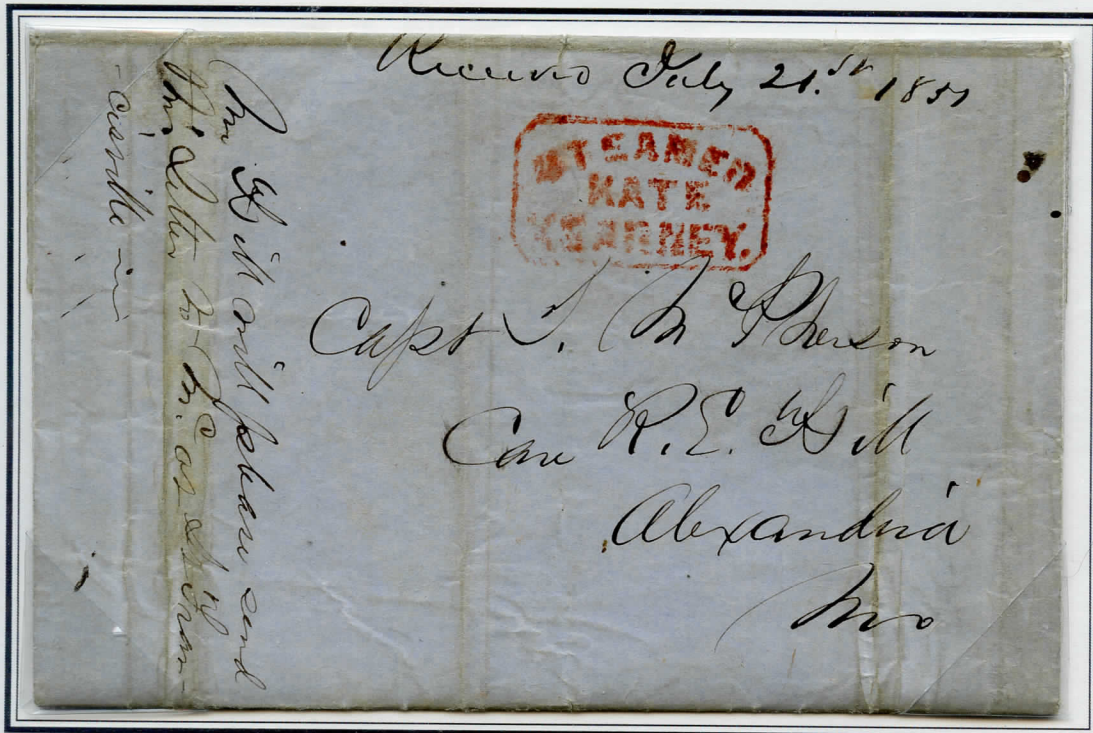 Received July 21.st 1851
STEAMER
KATE
KEARNEY.
Capt S. McPherson
Care R. E. Hill
Alexandria
Mo
Mr Hill will please send
this letter to Mc at St Fran-
-cisville